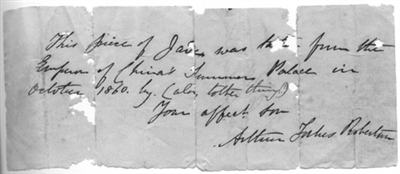 This piece of Jade was tkn from the
Emperor of China's Summer Palace in
October 1860. by (along other things)
Your affect son
Arthur Forbes Robertson